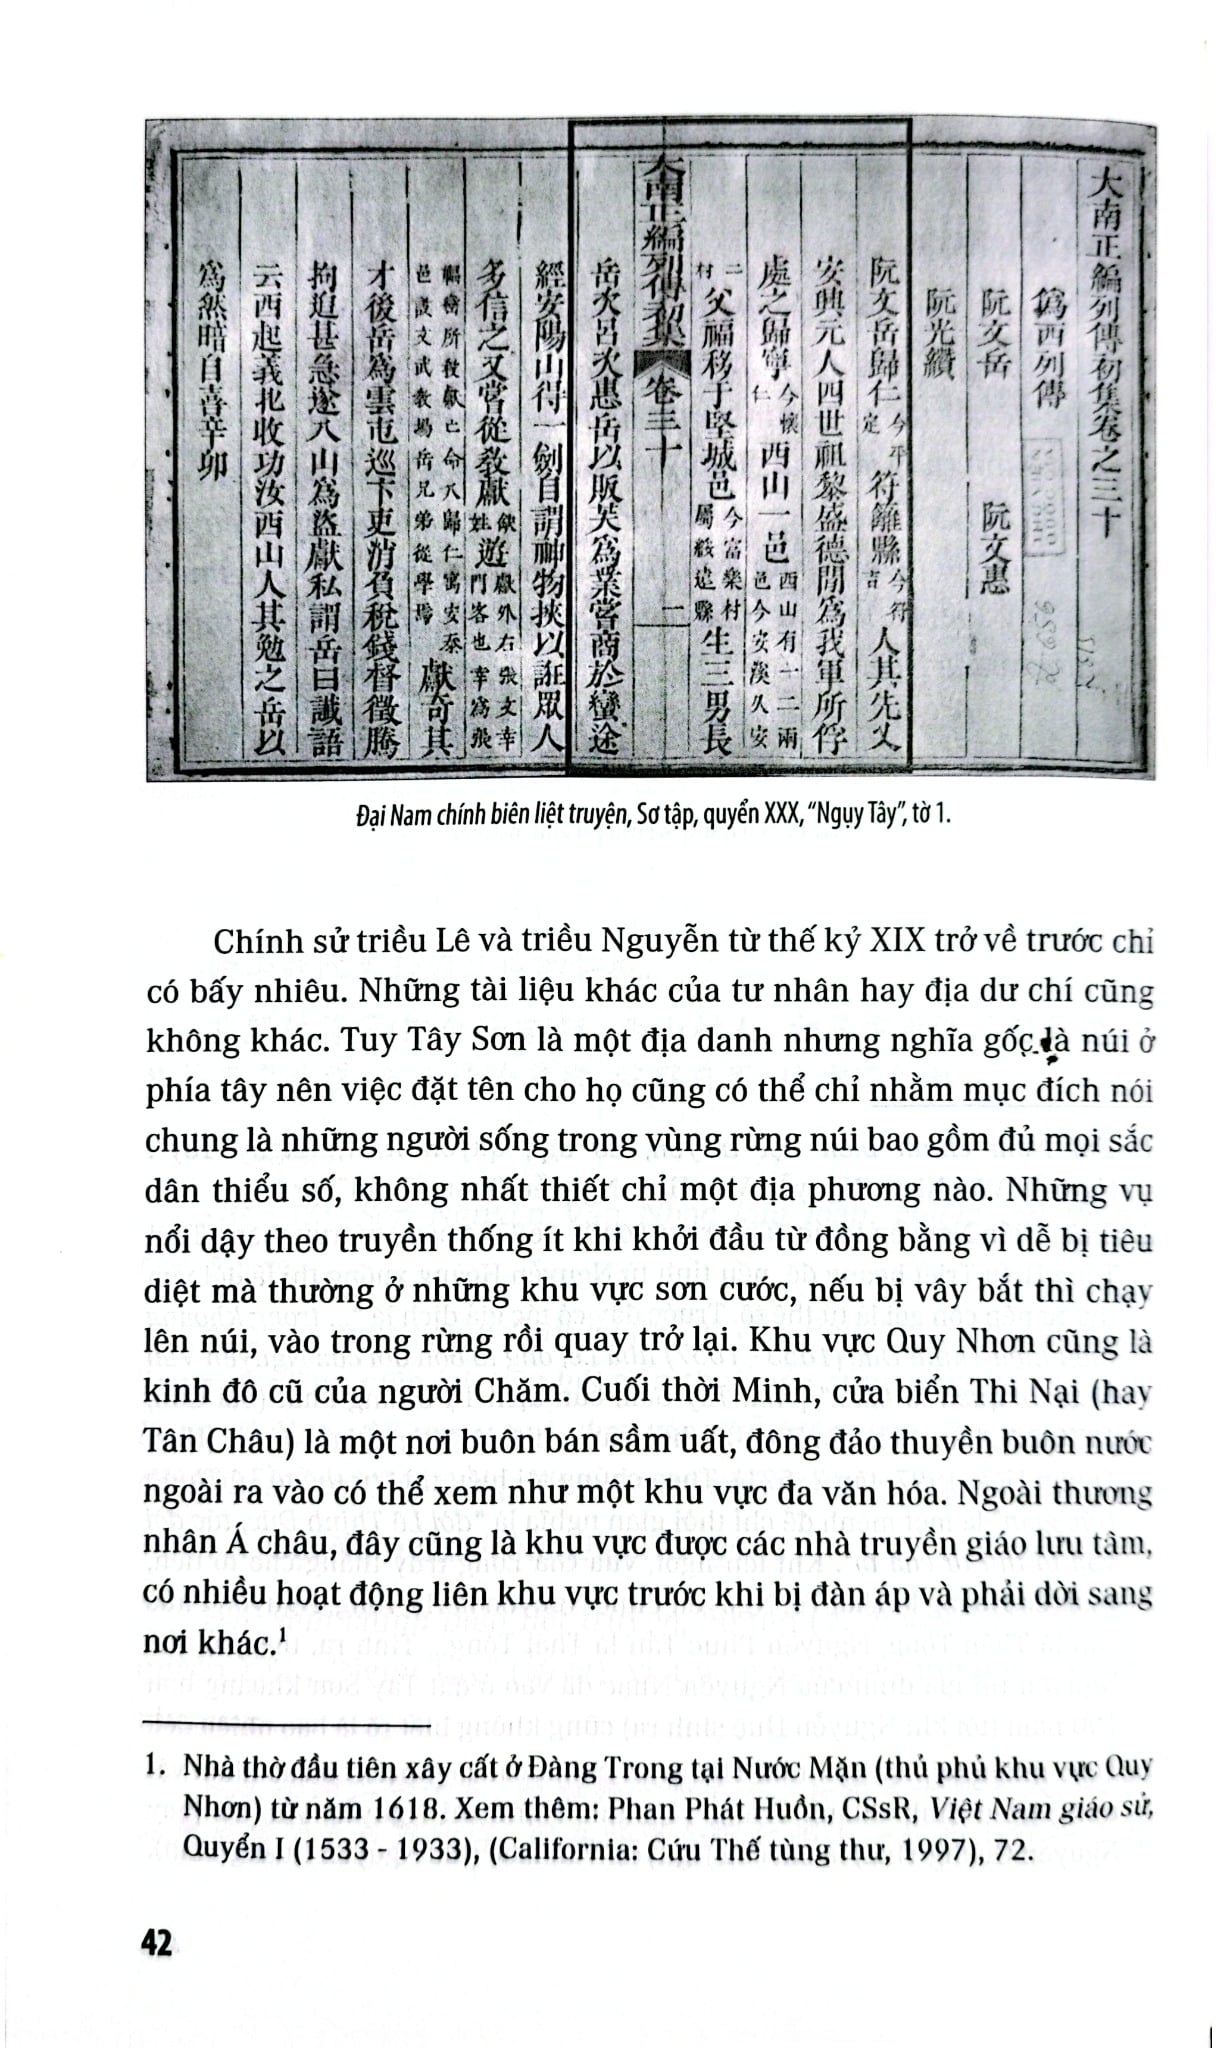 大南正編列傳初集卷之三十
偽西列傳
阮文岳 阮文惠
阮光纘
阮文岳歸仁今平定符籬縣今符吉人其先父
安興元人四世祖黎盛德間為我軍所俘
處之歸寧今懷仁西山一邑西山有一二兩邑今安溪久安
二村父福移于堅城邑今富樂村屬綏遠縣生三男長
大南正編列傳初集 卷三十 一
岳次呂次惠岳以販芙為業嘗商於蠻途
經安陽山得一劍自謂神物挾以誑眾人
多信之又嘗從教獻姓遊獻外右張文幸門客也幸為張
福巒所殺獻亡命入歸仁寓安泰邑設文武教場岳兄弟從學焉獻奇其
才後岳為雲屯巡卞吏消負稅錢督徵騰
拘迫甚急遂入山為盜獻私謂岳曰讖語
云西起義北收功汝西山人其勉之岳以
為然暗自喜辛卯
Đại Nam chính biên liệt truyện, Sơ tập, quyển XXX, “Ngụy Tây”, tờ 1.
Chính sử triều Lê và triều Nguyễn từ thế kỷ XIX trở về trước chỉ
có bấy nhiêu. Những tài liệu khác của tư nhân hay địa dư chí cũng
không khác. Tuy Tây Sơn là một địa danh nhưng nghĩa gốc là núi ở
phía tây nên việc đặt tên cho họ cũng có thể chỉ nhằm mục đích nói
chung là những người sống trong vùng rừng núi bao gồm đủ mọi sắc
dân thiểu số, không nhất thiết chỉ một địa phương nào. Những vụ
nổi dậy theo truyền thống ít khi khởi đầu từ đồng bằng vì dễ bị tiêu
diệt mà thường ở những khu vực sơn cước, nếu bị vây bắt thì chạy
lên núi, vào trong rừng rồi quay trở lại. Khu vực Quy Nhơn cũng là
kinh đô cũ của người Chăm. Cuối thời Minh, cửa biển Thi Nại (hay
Tân Châu) là một nơi buôn bán sầm uất, đông đảo thuyền buôn nước
ngoài ra vào có thể xem như một khu vực đa văn hóa. Ngoài thương
nhân Á châu, đây cũng là khu vực được các nhà truyền giáo lưu tâm,
có nhiều hoạt động liên khu vực trước khi bị đàn áp và phải dời sang
nơi khác.¹
1. Nhà thờ đầu tiên xây cất ở Đàng Trong tại Nước Mặn (thủ phủ khu vực Quy
Nhơn) từ năm 1618. Xem thêm: Phan Phát Huồn, CSsR, Việt Nam giáo sử,
Quyển I (1533 - 1933), (California: Cứu Thế tùng thư, 1997), 72.
42